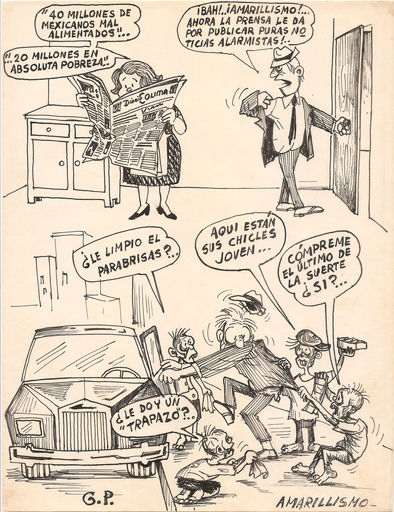 "40 MILLONES DE
MEXICANOS MAL
ALIMENTADOS"...
"...20 MILLONES EN
ABSOLUTA POBREZA"
¡BAH!..¡AMARILLISMO!...
AHORA LA PRENSA LE DA
POR PUBLICAR PURAS NO
TICIAS ALARMISTAS!..
Diario COLIMA
¿LE LIMPIO EL
PARABRISAS?..
AQUI ESTÁN
SUS CHICLES
JOVEN...
CÓMPREME
EL ÚLTIMO DE
LA SUERTE
¿SI?...
¿LE DOY UN
"TRAPAZO"?..
G.P.
AMARILLISMO-